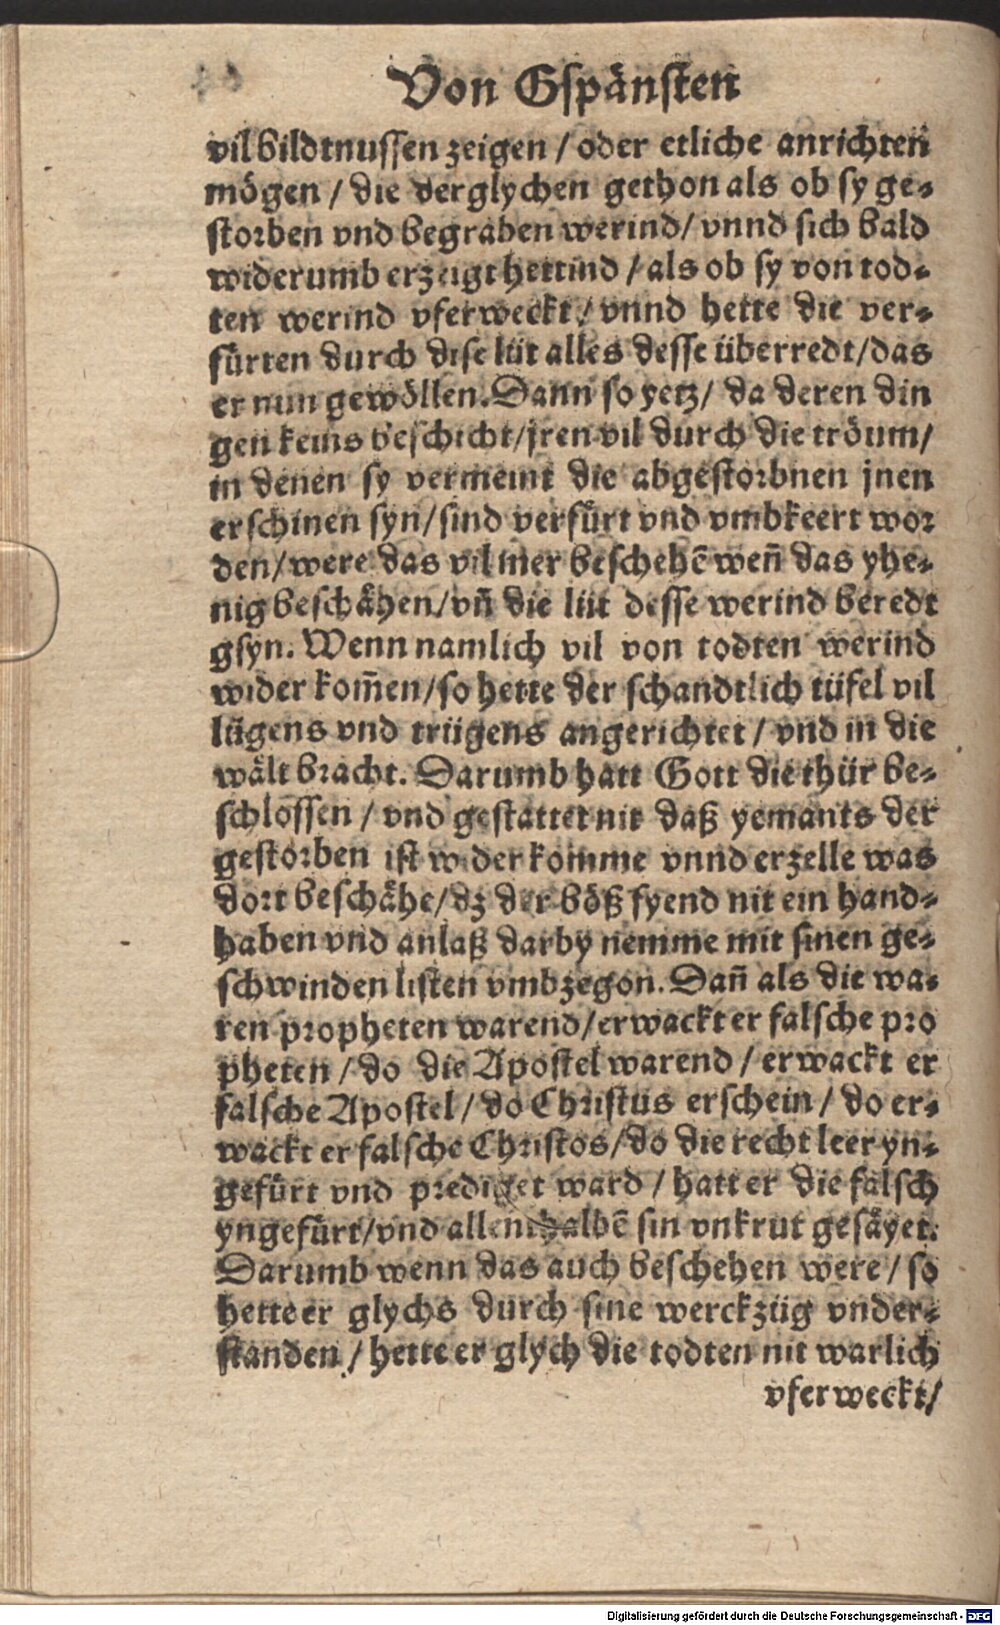 Von Gspänsten
vil bildtnussen zeigen / oder etliche anrichten
mögen / die derglychen gethon als ob sy ge⸗
storben vnd begraben werind / vnnd sich bald
widerumb erzeigt hettind / als ob sy von tod⸗
ten werind vferweckt / vnnd hette die ver⸗
fürten durch dise lüt alles desse überredt / das
er nun gewöllen. Dann so yetz / da deren din
gen keins beschicht / jren vil durch die tröum /
in denen sy vermeint die abgestorbnen jnen
erschinen syn / sind verfürt vnd vmbkeert wor
den / were das vil mer beschehē weñ das yhe⸗
nig beschähen / vñ die lüt desse werind beredt
gsyn. Wenn namlich vil von todten werind
wider kom̃en / so hette der schandtlich tüfel vil
lügens vnd trügens angerichtet / vnd in die
wält bracht. Darumb hatt Gott die thür be⸗
schlossen / vnd gestattet nit daß yemants der
gestorben ist wider komme vnnd erzelle was
dort beschähe / dz der böß fyend nit ein hand⸗
haben vnd anlaß darby nemme mit sinen ge⸗
schwinden listen vmbzegon. Dañ als die wa⸗
ren propheten warend / erwackt er falsche pro
pheten / do die Apostel warend / erwackt er
falsche Apostel / do Christus erschein / do er⸗
wackt er falsche Christos / do die recht leer yn⸗
gefürt vnd prediget ward / hatt er die falsch
yngefürt / vnd allenthalbē sin vnkrut gesäyet.
Darumb wenn das auch beschehen were / so
hette er glychs durch sine werckzüg vnder⸗
standen / hette er glych die todten nit warlich
vferweckt /
Digitalisierung gefördert durch die Deutsche Forschungsgemeinschaft - DFG